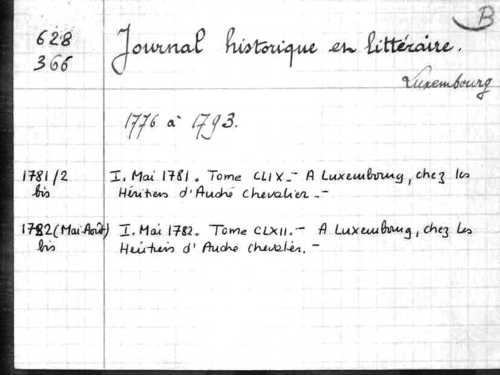 B
628
366
Journal historique en littéraire.
Luxembourg
1776 à 1793.
1781/2 I. Mai 1781. Tome CLIX.- A Luxembourg, chez les
bis Héritiers d'André Chevalier.-
1782 (Mai-Août) I. Mai 1782. Tome CLXII.- A Luxembourg, chez les
bis Héritiers d'André Chevalier.-